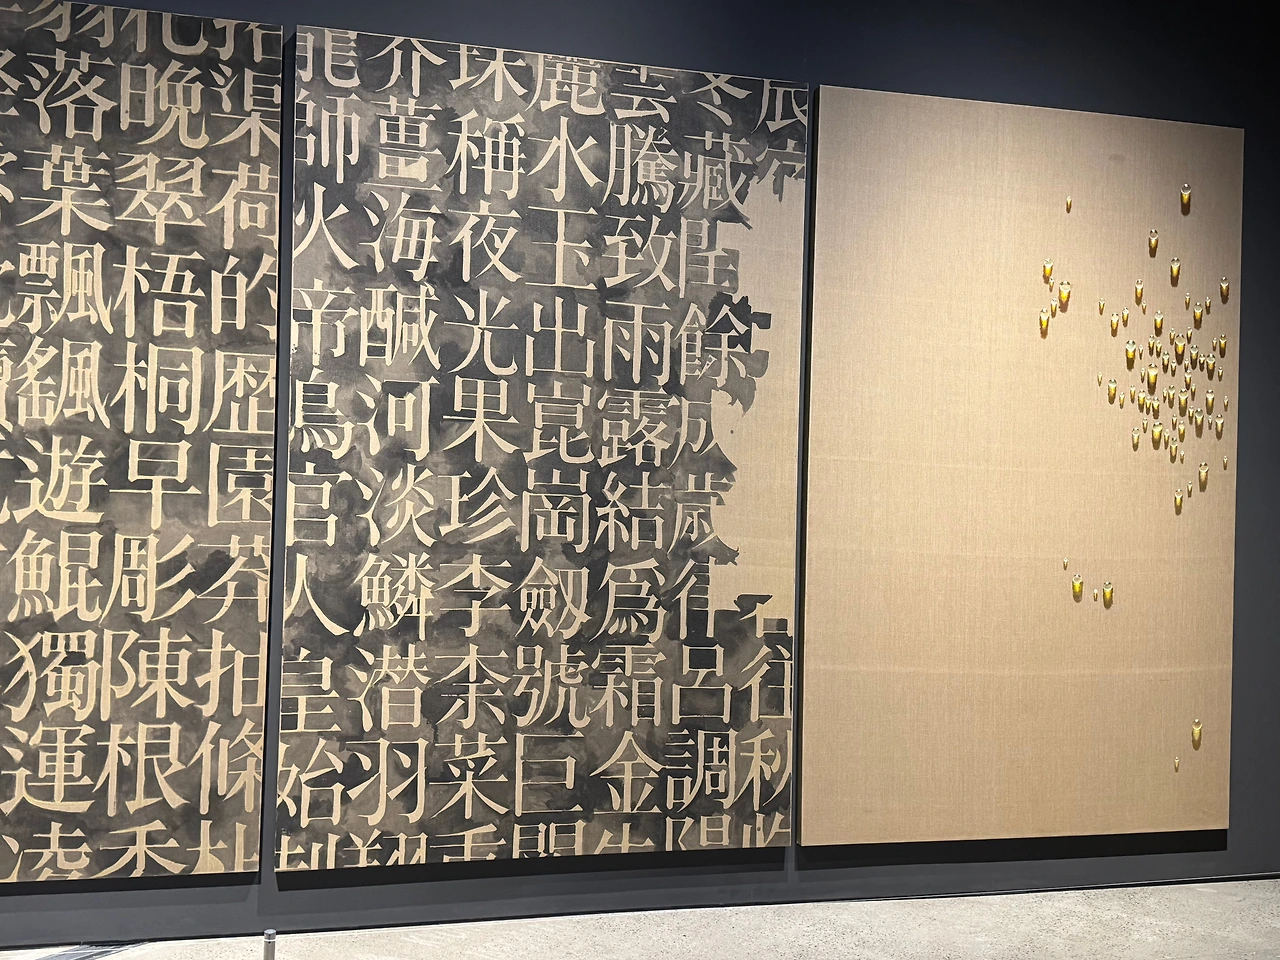 辰宿往秋
冬藏餘成歲律呂調陽
雲騰致雨露結爲霜金生
麗水玉出崑崗劒號巨闕
珠稱夜光果珍李柰菜重
芥薑海醎河淡鱗潜羽翔
師火帝鳥官人皇始制
渠荷的歴園莽抽條
晩翠梧桐早彫陳根委
落葉飄颻遊鯤獨運凌